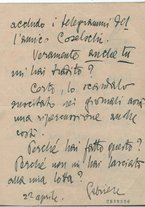 accludo i telegrammi del
l'amico
Veramente anche tu
mi hai tradito?
Certo, lo scandalo
suscitato nei giornali avrà
una ripercussione anche
così.
Perché hai fatto questo?
Perché non mi hai lasciato
alla mia
22 aprile.